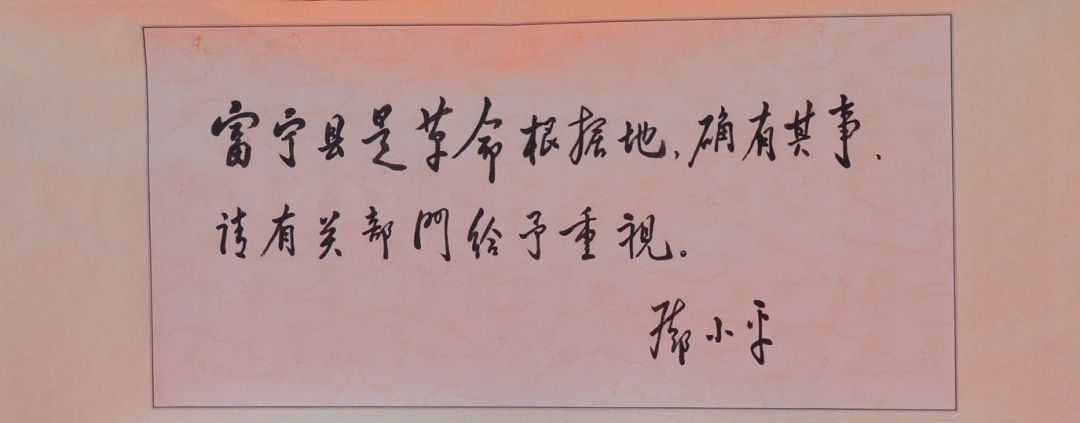 富宁县是革命根据地,确有其事,
请有关部門给予重視。
鄧小平